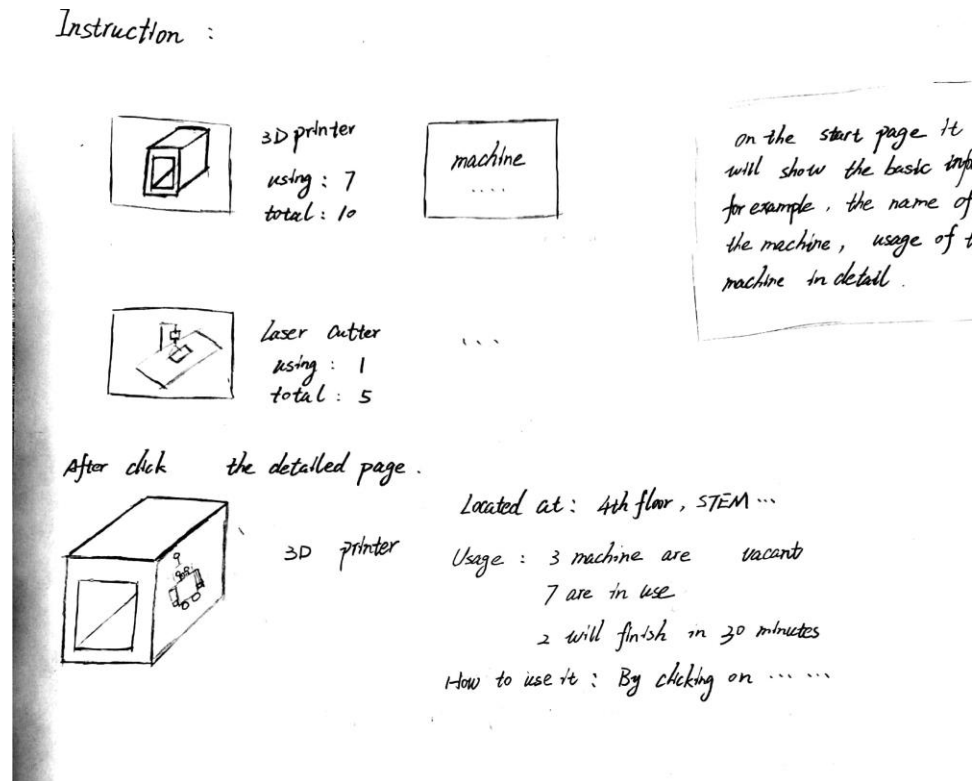 Instruction :
3D printer
using : 7
total : 10
machine
....
on the start page it
will show the basic
for example, the name of
the machine, usage of
machine in detail.
Laser Cutter
using : 1
total : 5
...
After click the detailed page.
3D printer
Located at : 4th floor, STEM ...
Usage : 3 machine are vacant
7 are in use
2 will finish in 30 minutes
How to use it : By clicking on ... ...